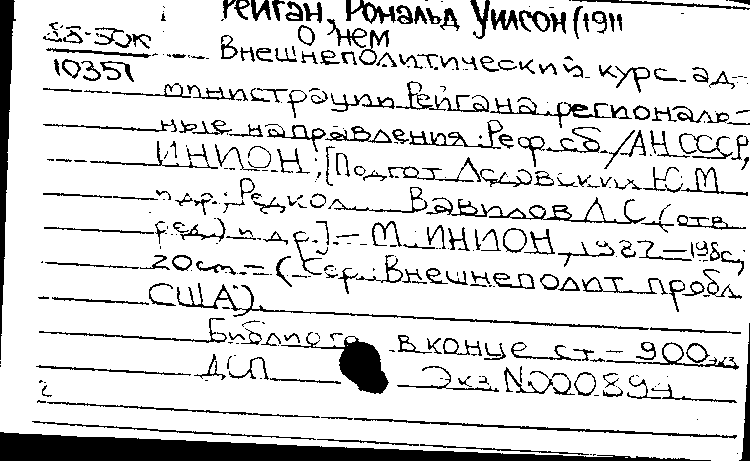 Рейган, Рональд Уилсон (1911
О нем
88-50к
10351
Внешнеполитический курс ад-
министрации Рейгана: региональ-
ные направления: Реф. сб. / АН СССР,
ИНИОН; [Подгот. Ледовских Ю.М
и др.; Редкол. Вавилов А.С. (отв
ред.) и др.]. – М.: ИНИОН, 1987–198
20 см. – (Сер.: Внешнеполит. пробл.
США).
Библиогр в конце ст. – 900 экз
ДСП Экз. N000894
2